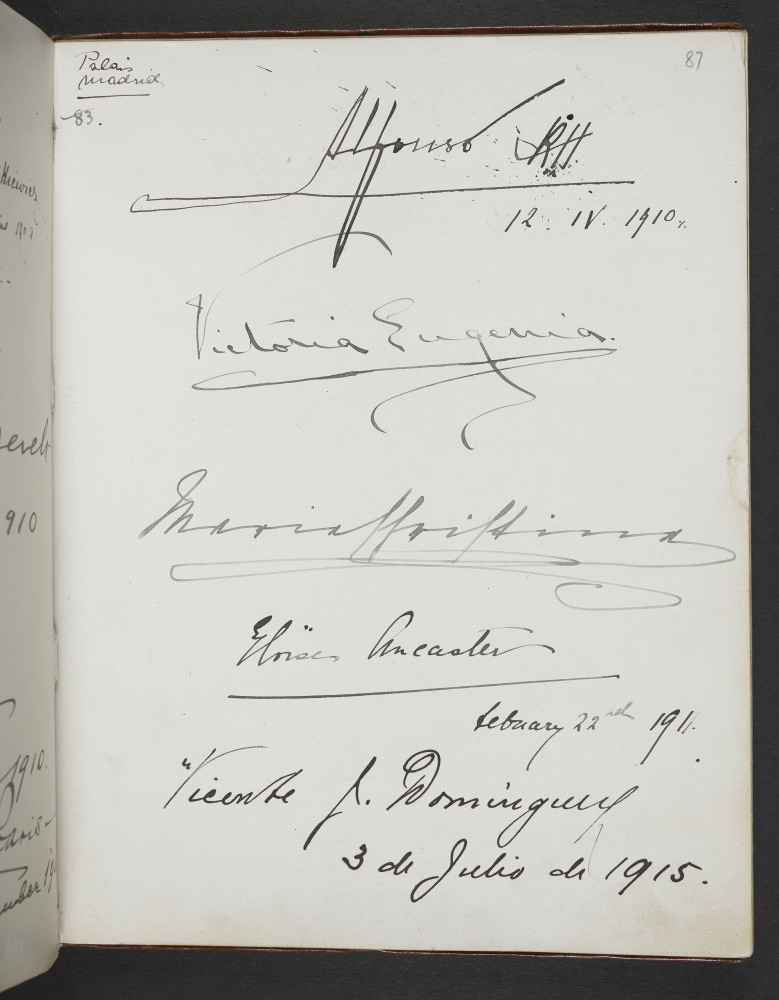 Palais
Madrid
83.
87
Alfonso RH
12. IV. 1910.
Victoria Eugenia.
Maria Christina
Eloïse Ancaster
Febuary 22nd 1911.
Vicente J. Dominguez
3 de Julio de 1915.
910
1910.